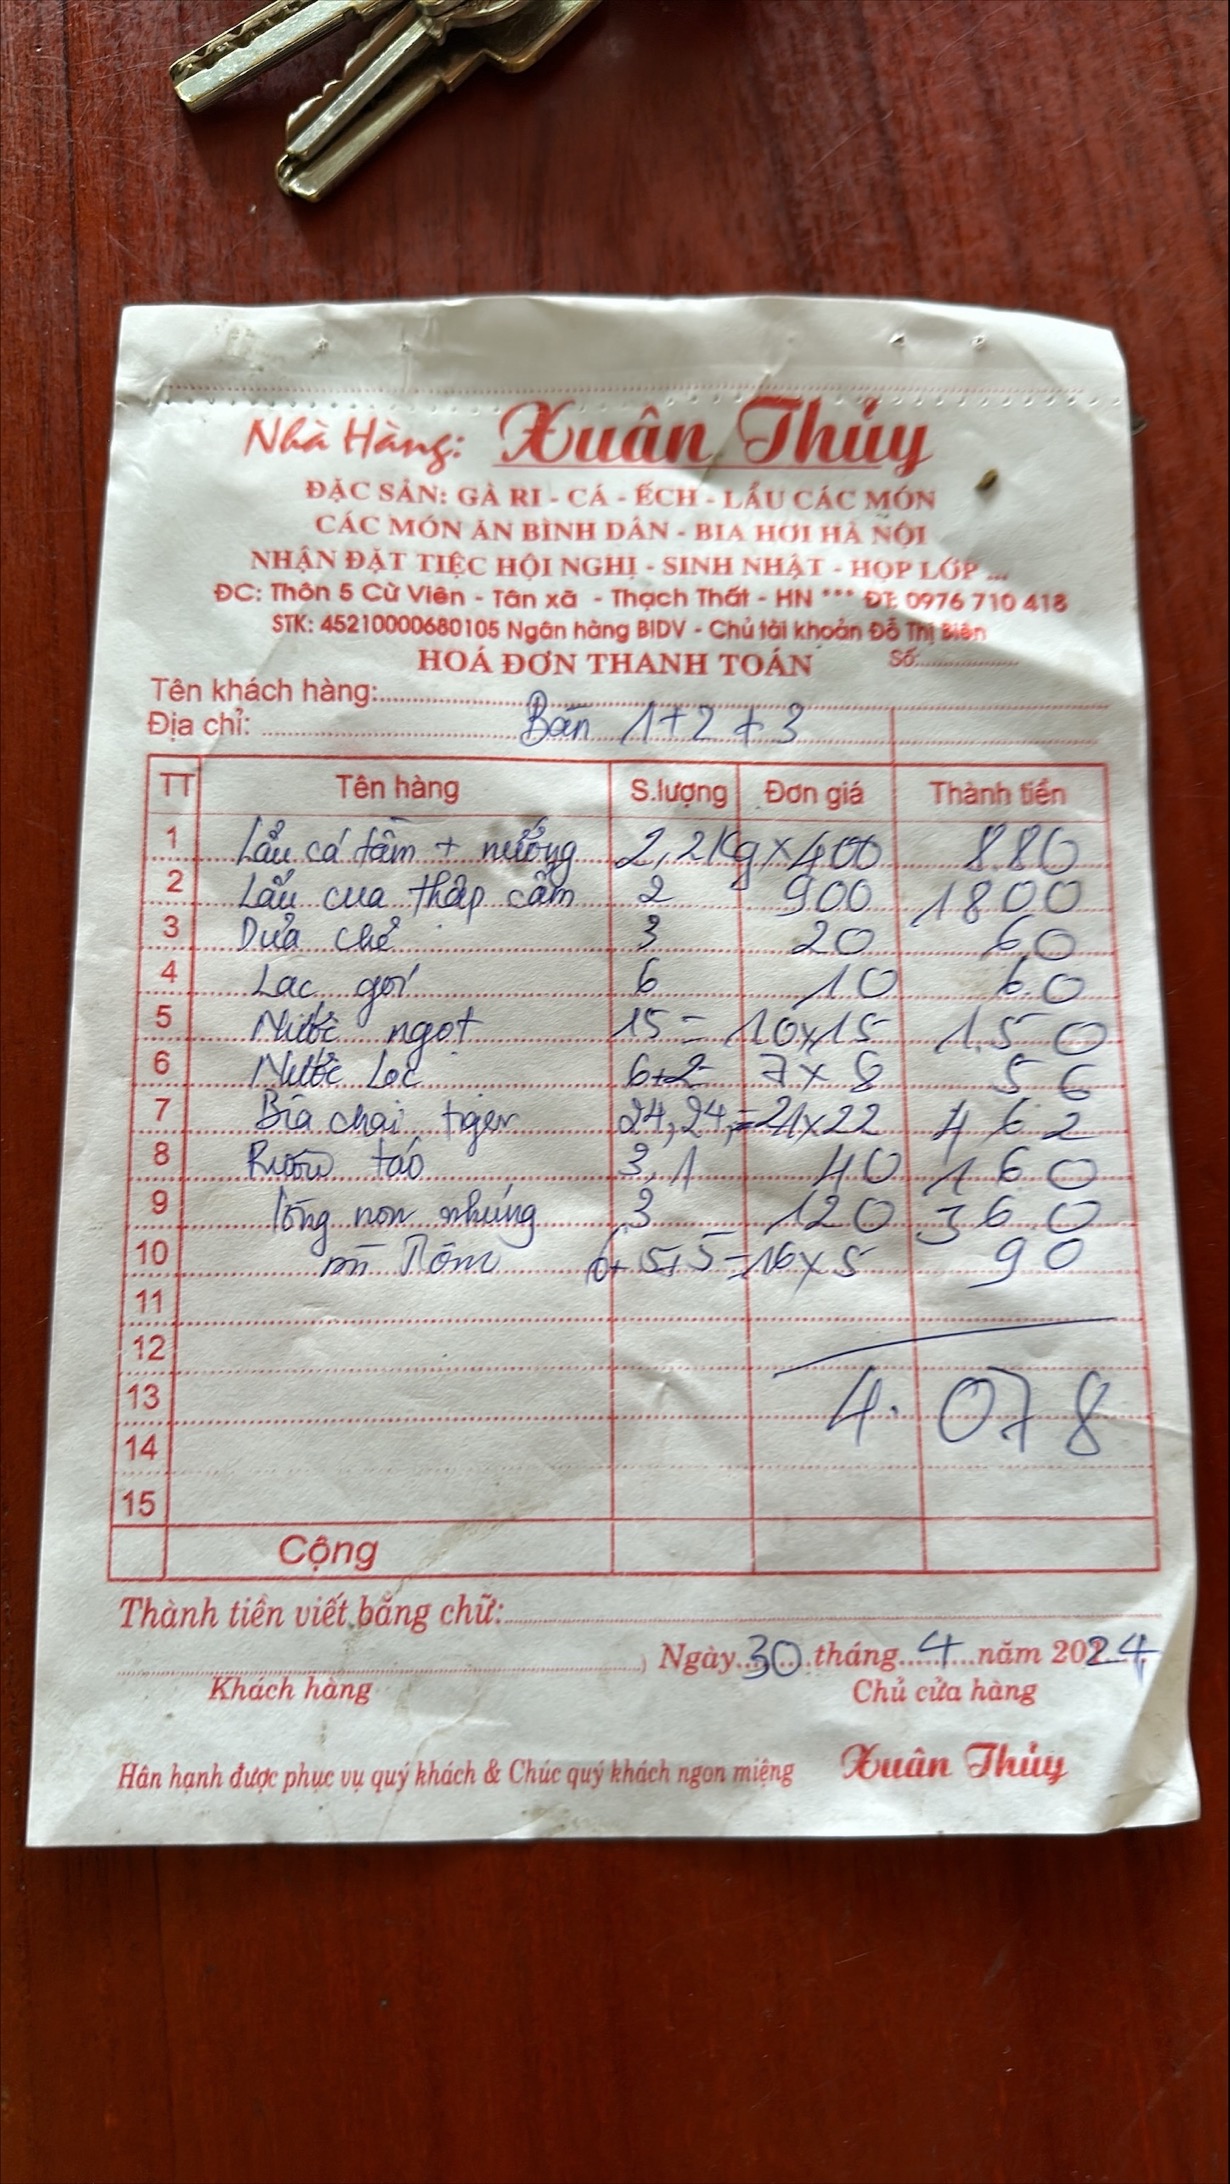 Nhà Hàng: Xuân Thủy
ĐẶC SẢN: GÀ RI - CÁ - ẾCH - LẨU CÁC MÓN
CÁC MÓN ĂN BÌNH DÂN - BIA HƠI HÀ NỘI
NHẬN ĐẶT TIỆC HỘI NGHỊ - SINH NHẬT - HỌP LỚP ...
ĐC: Thôn 5 Cừ Viên - Tân xã - Thạch Thất - HN *** ĐT: 0976 710 418
STK: 45210000680105 Ngân hàng BIDV - Chủ tài khoản Đỗ Thị Biên
HOÁ ĐƠN THANH TOÁN Số:
Tên khách hàng:
Địa chỉ: Bàn 1+2+3
TT Tên hàng S.lượng Đơn giá Thành tiền
1 Lẩu cá tầm + nướng 2,2Kg x 400 880
2 Lẩu cua thập cẩm 2 900 1800
3 Dưa chẻ 3 20 60
4 Lạc gói 6 10 60
5 Nước ngọt 15 = 10x15 150
6 Nước Lọc 6+2 7 x 8 56
7 Bia chai tiger 24,24,=21x22 462
8 Rượu táo 3,1 40 160
9 lòng non nhúng 3 120 360
10 mì Tôm 6+5+5=16x5 90
11
12
13 4.078
14
15
Cộng
Thành tiền viết bằng chữ:
Ngày 30 tháng 4 năm 2024
Khách hàng Chủ cửa hàng
Hân hạnh được phục vụ quý khách & Chúc quý khách ngon miệng Xuân Thủy